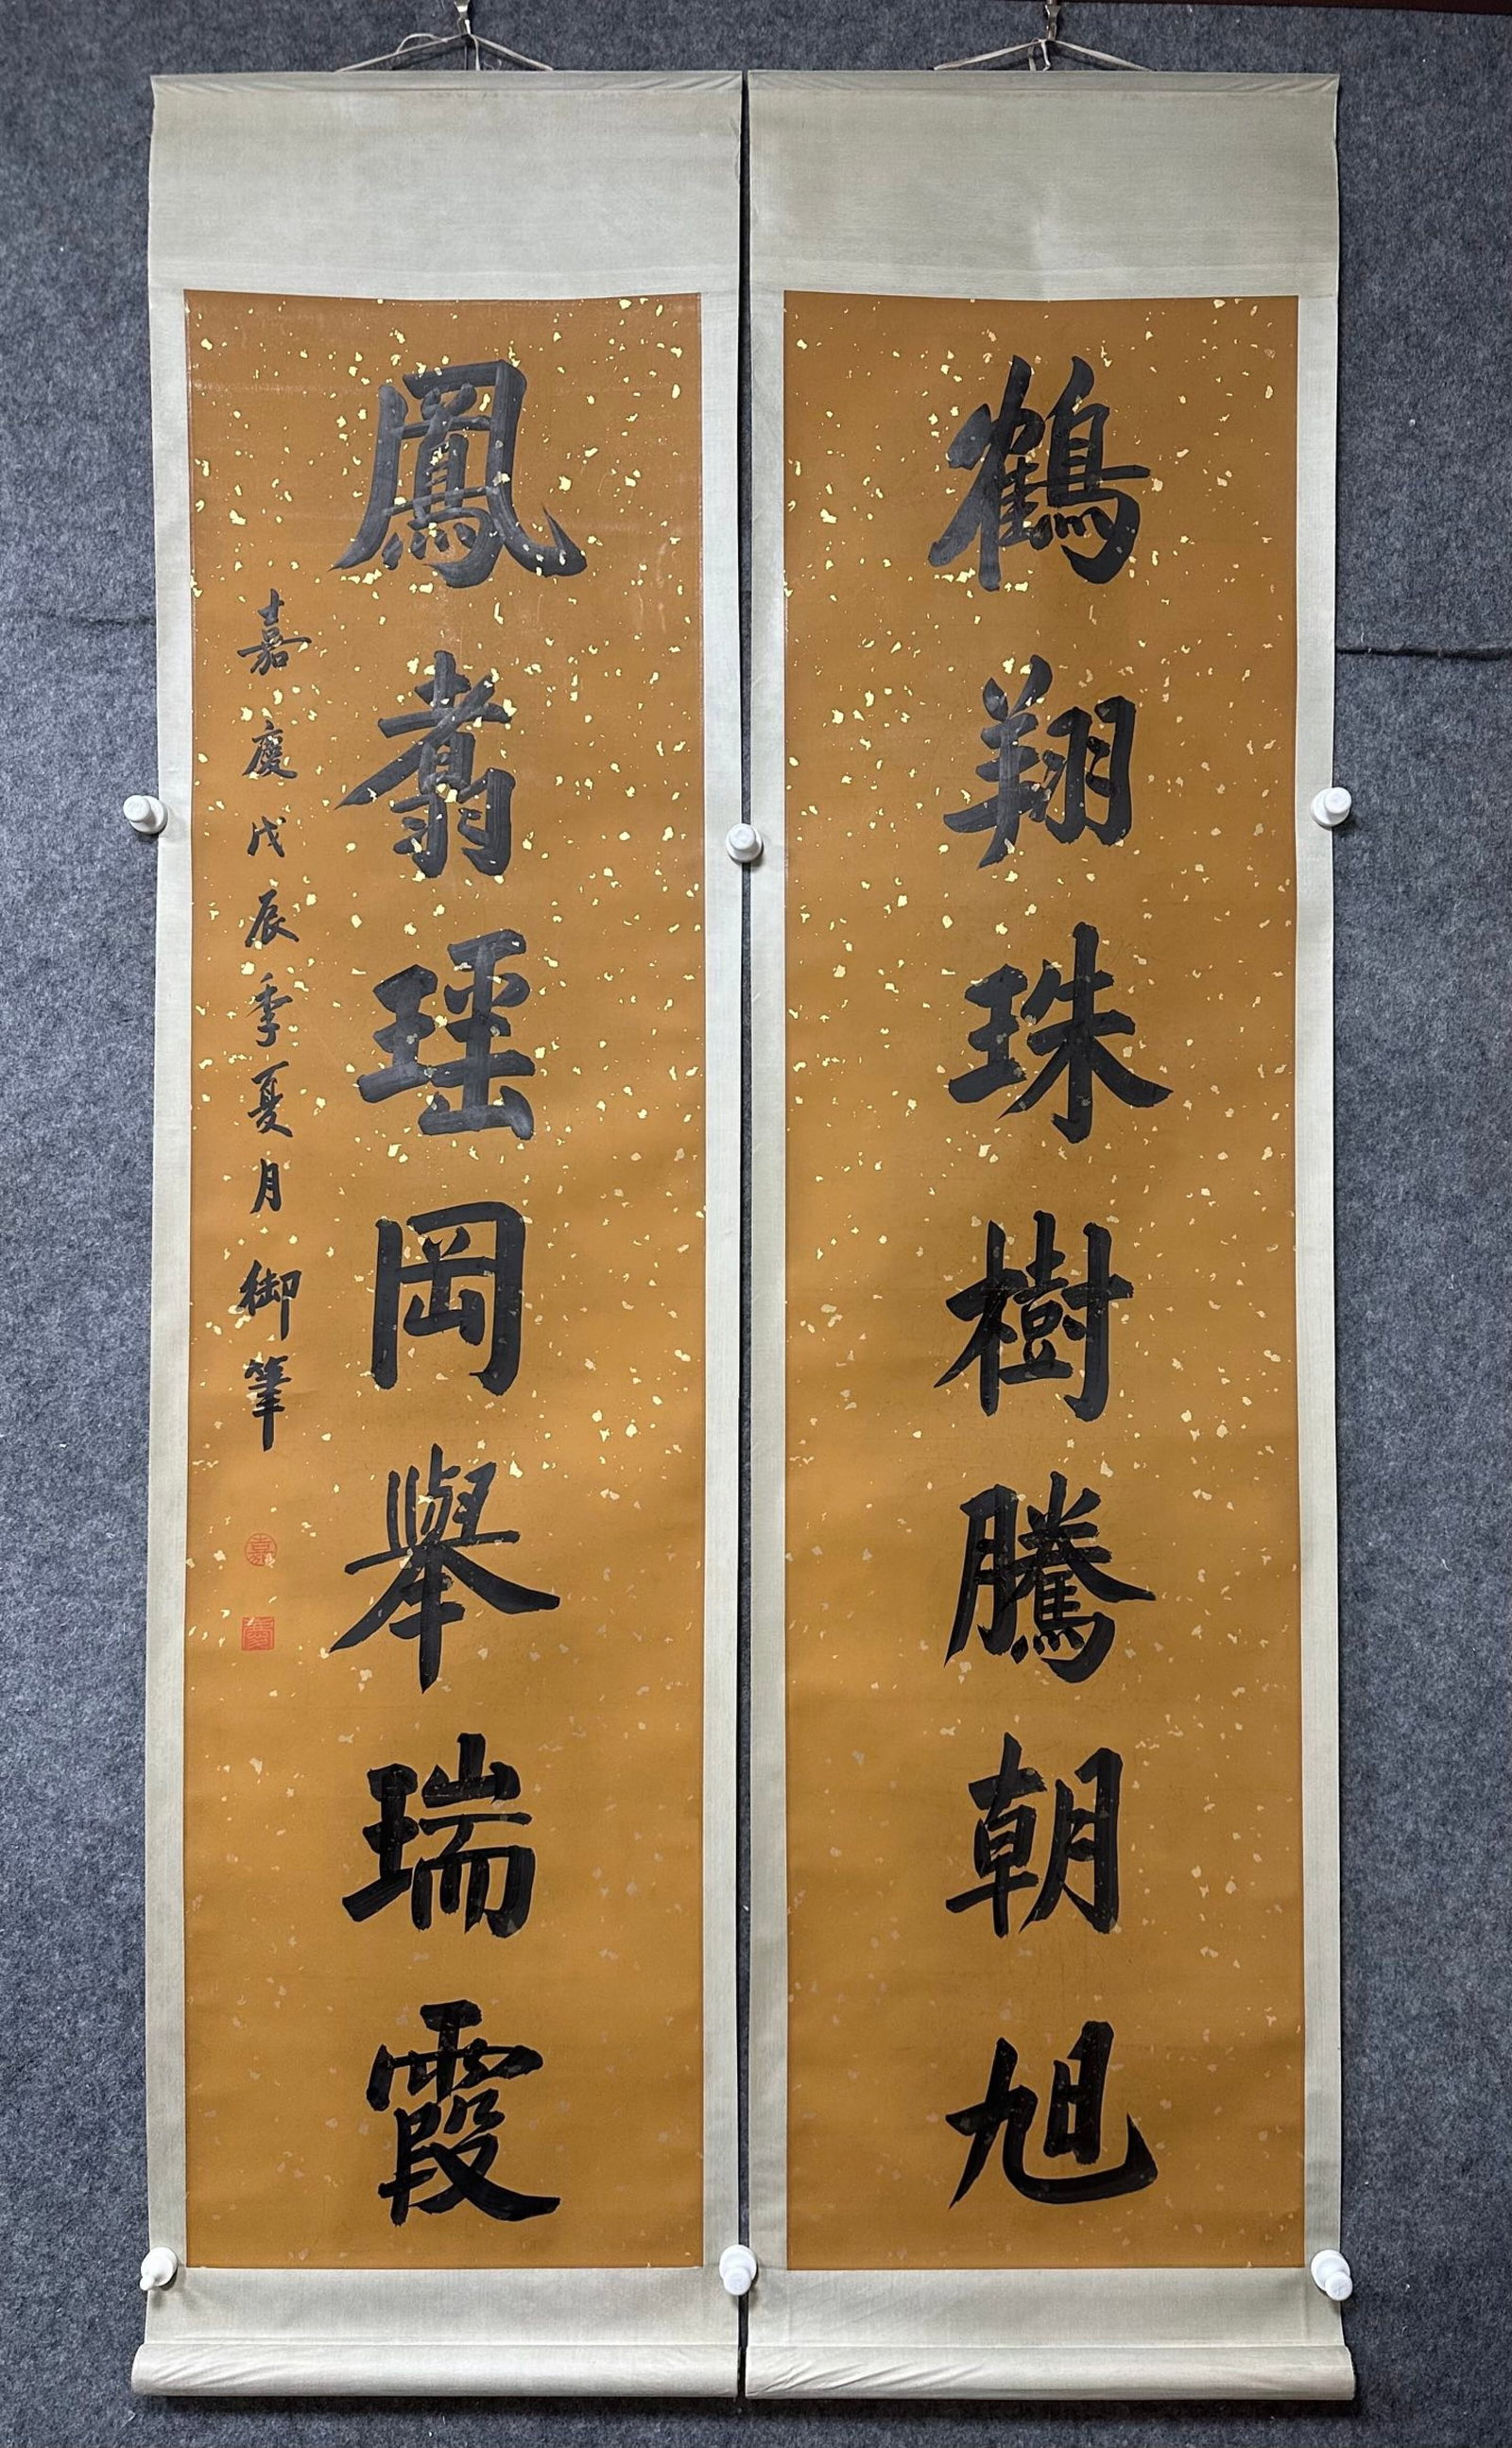 鶴翔珠樹騰朝旭
鳳翥瑶岡舉瑞霞
嘉慶戊辰季夏月御筆